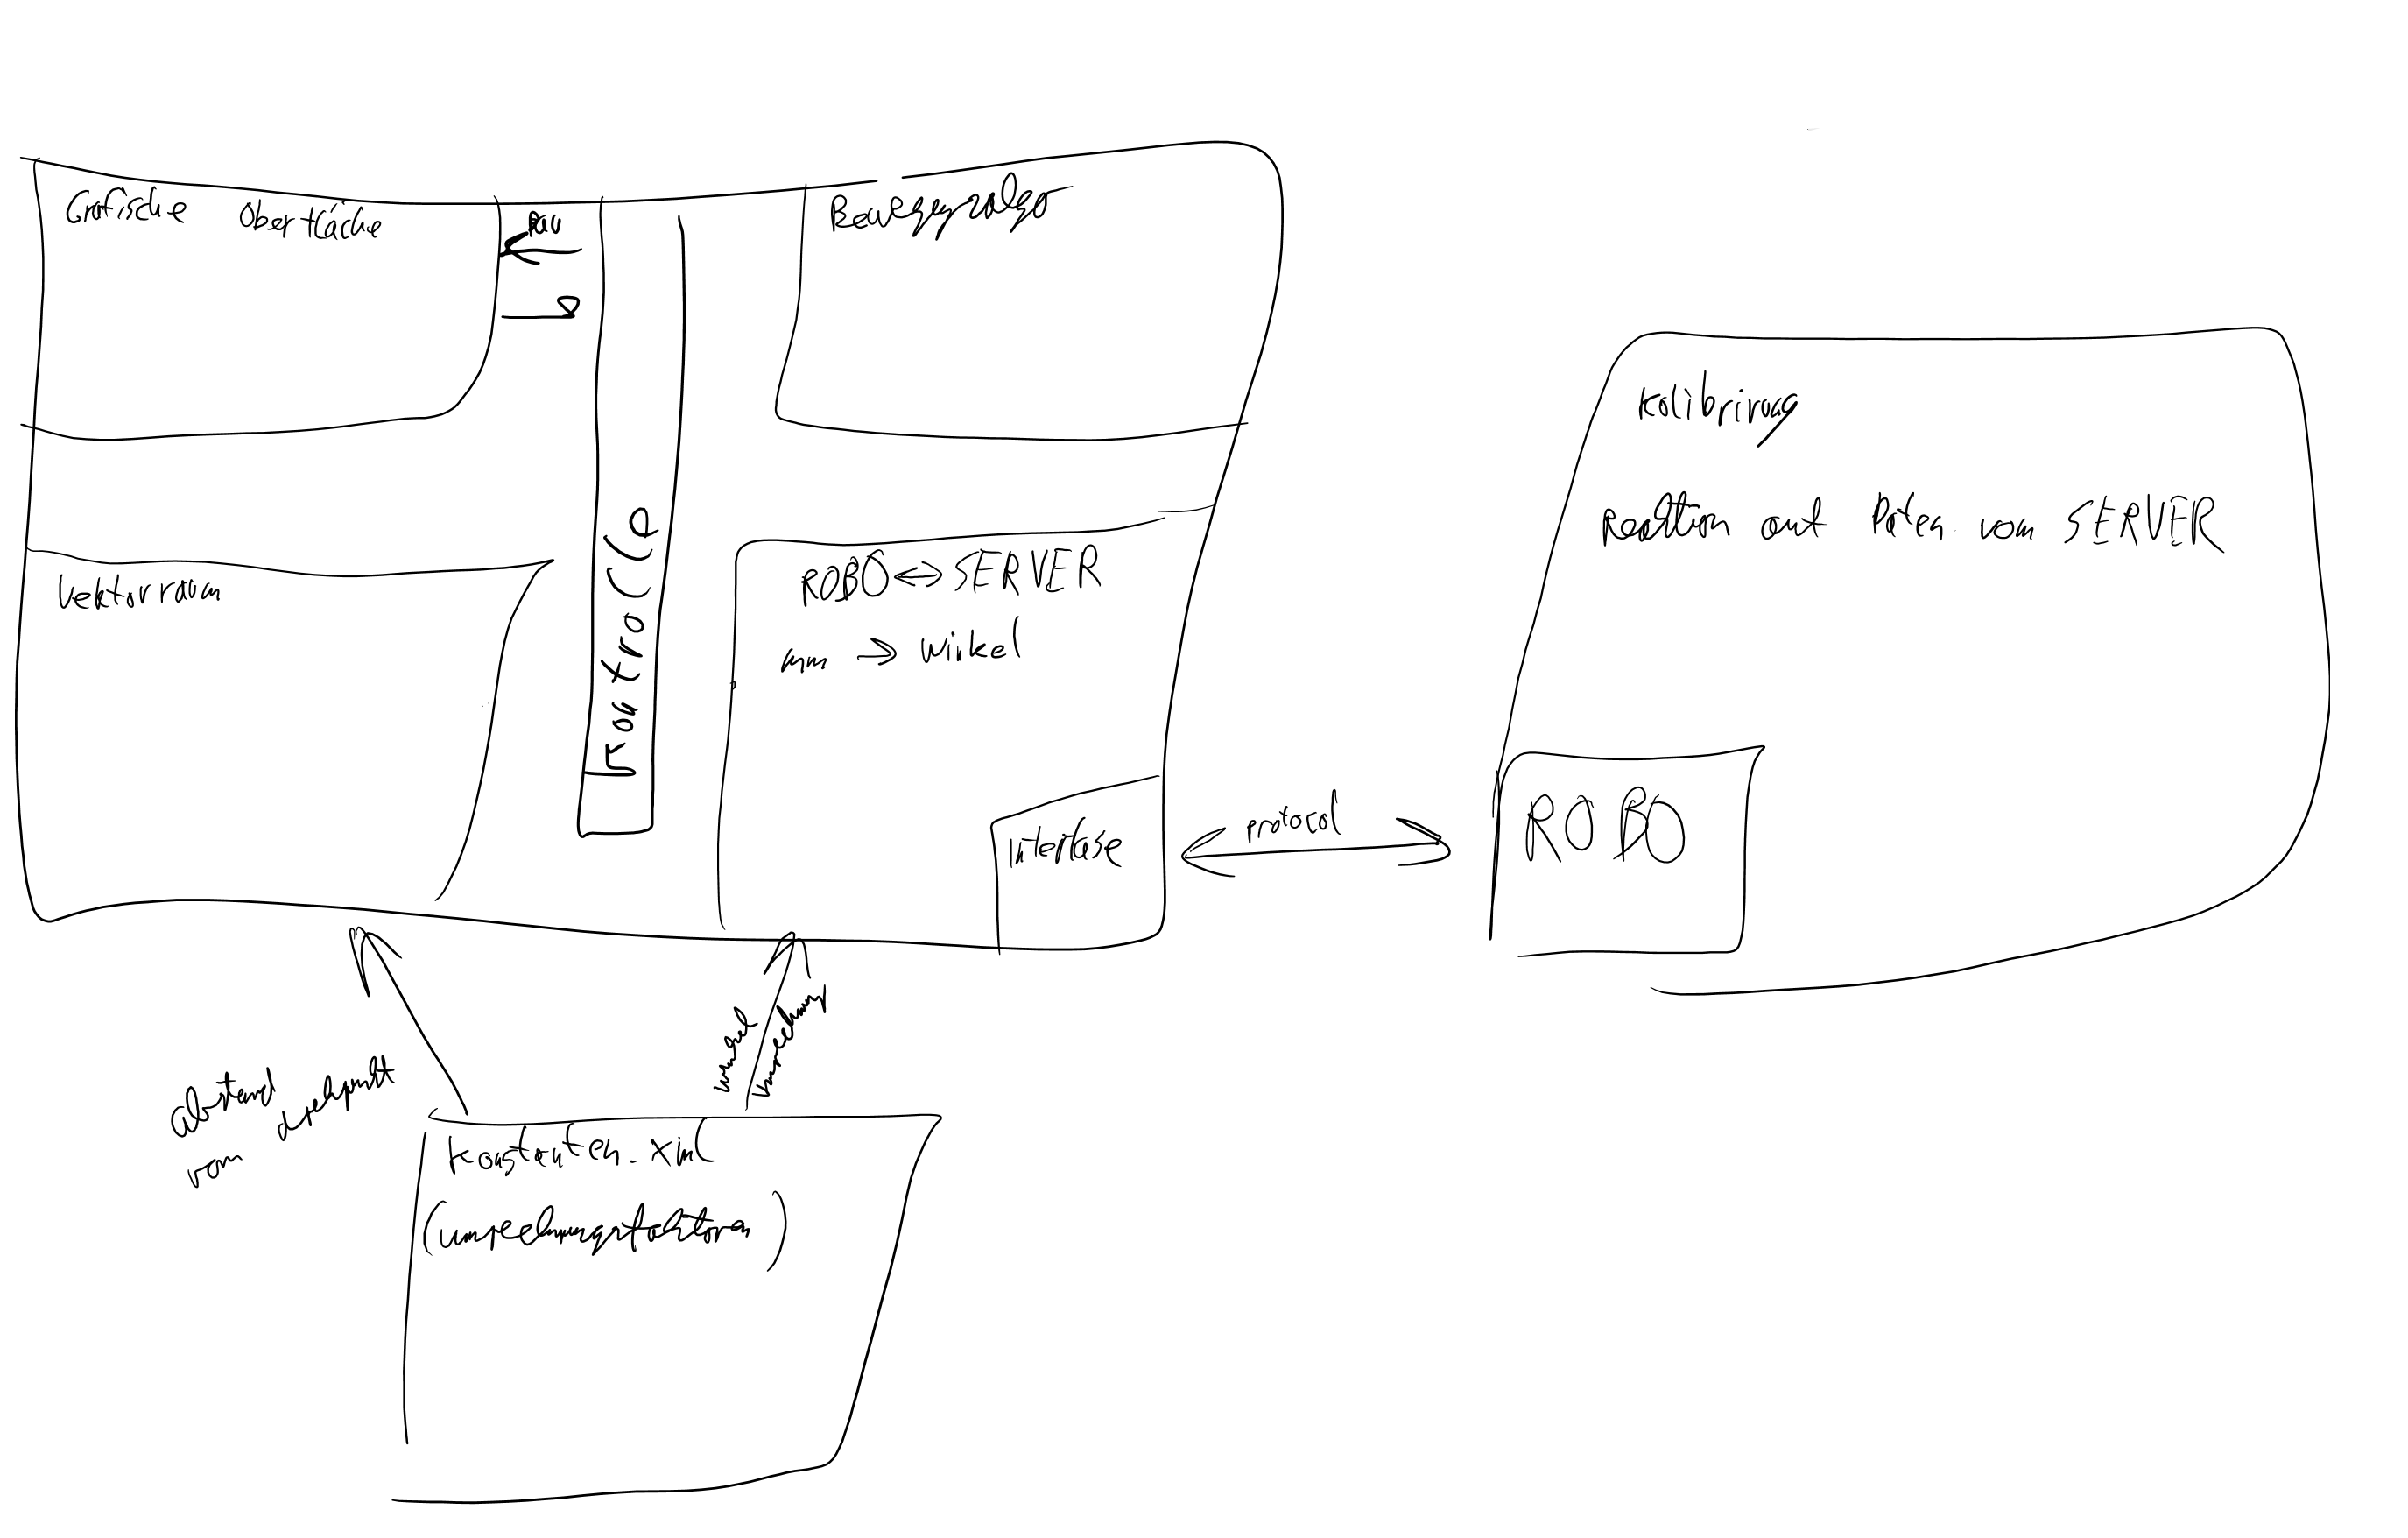 Grafische Oberfläche
Bewegungsalgo
Kontrolle
Vektorraum
ROBO <-> SERVER
mm -> Winkel
Interfase
protocol
Kalibrirung
Reaktion auf Daten vom SERVER
ROBO
abstand
vom drehpunkt
winkel
umrechnung
Konstanten.xml
(umrechnungsfaktoren)